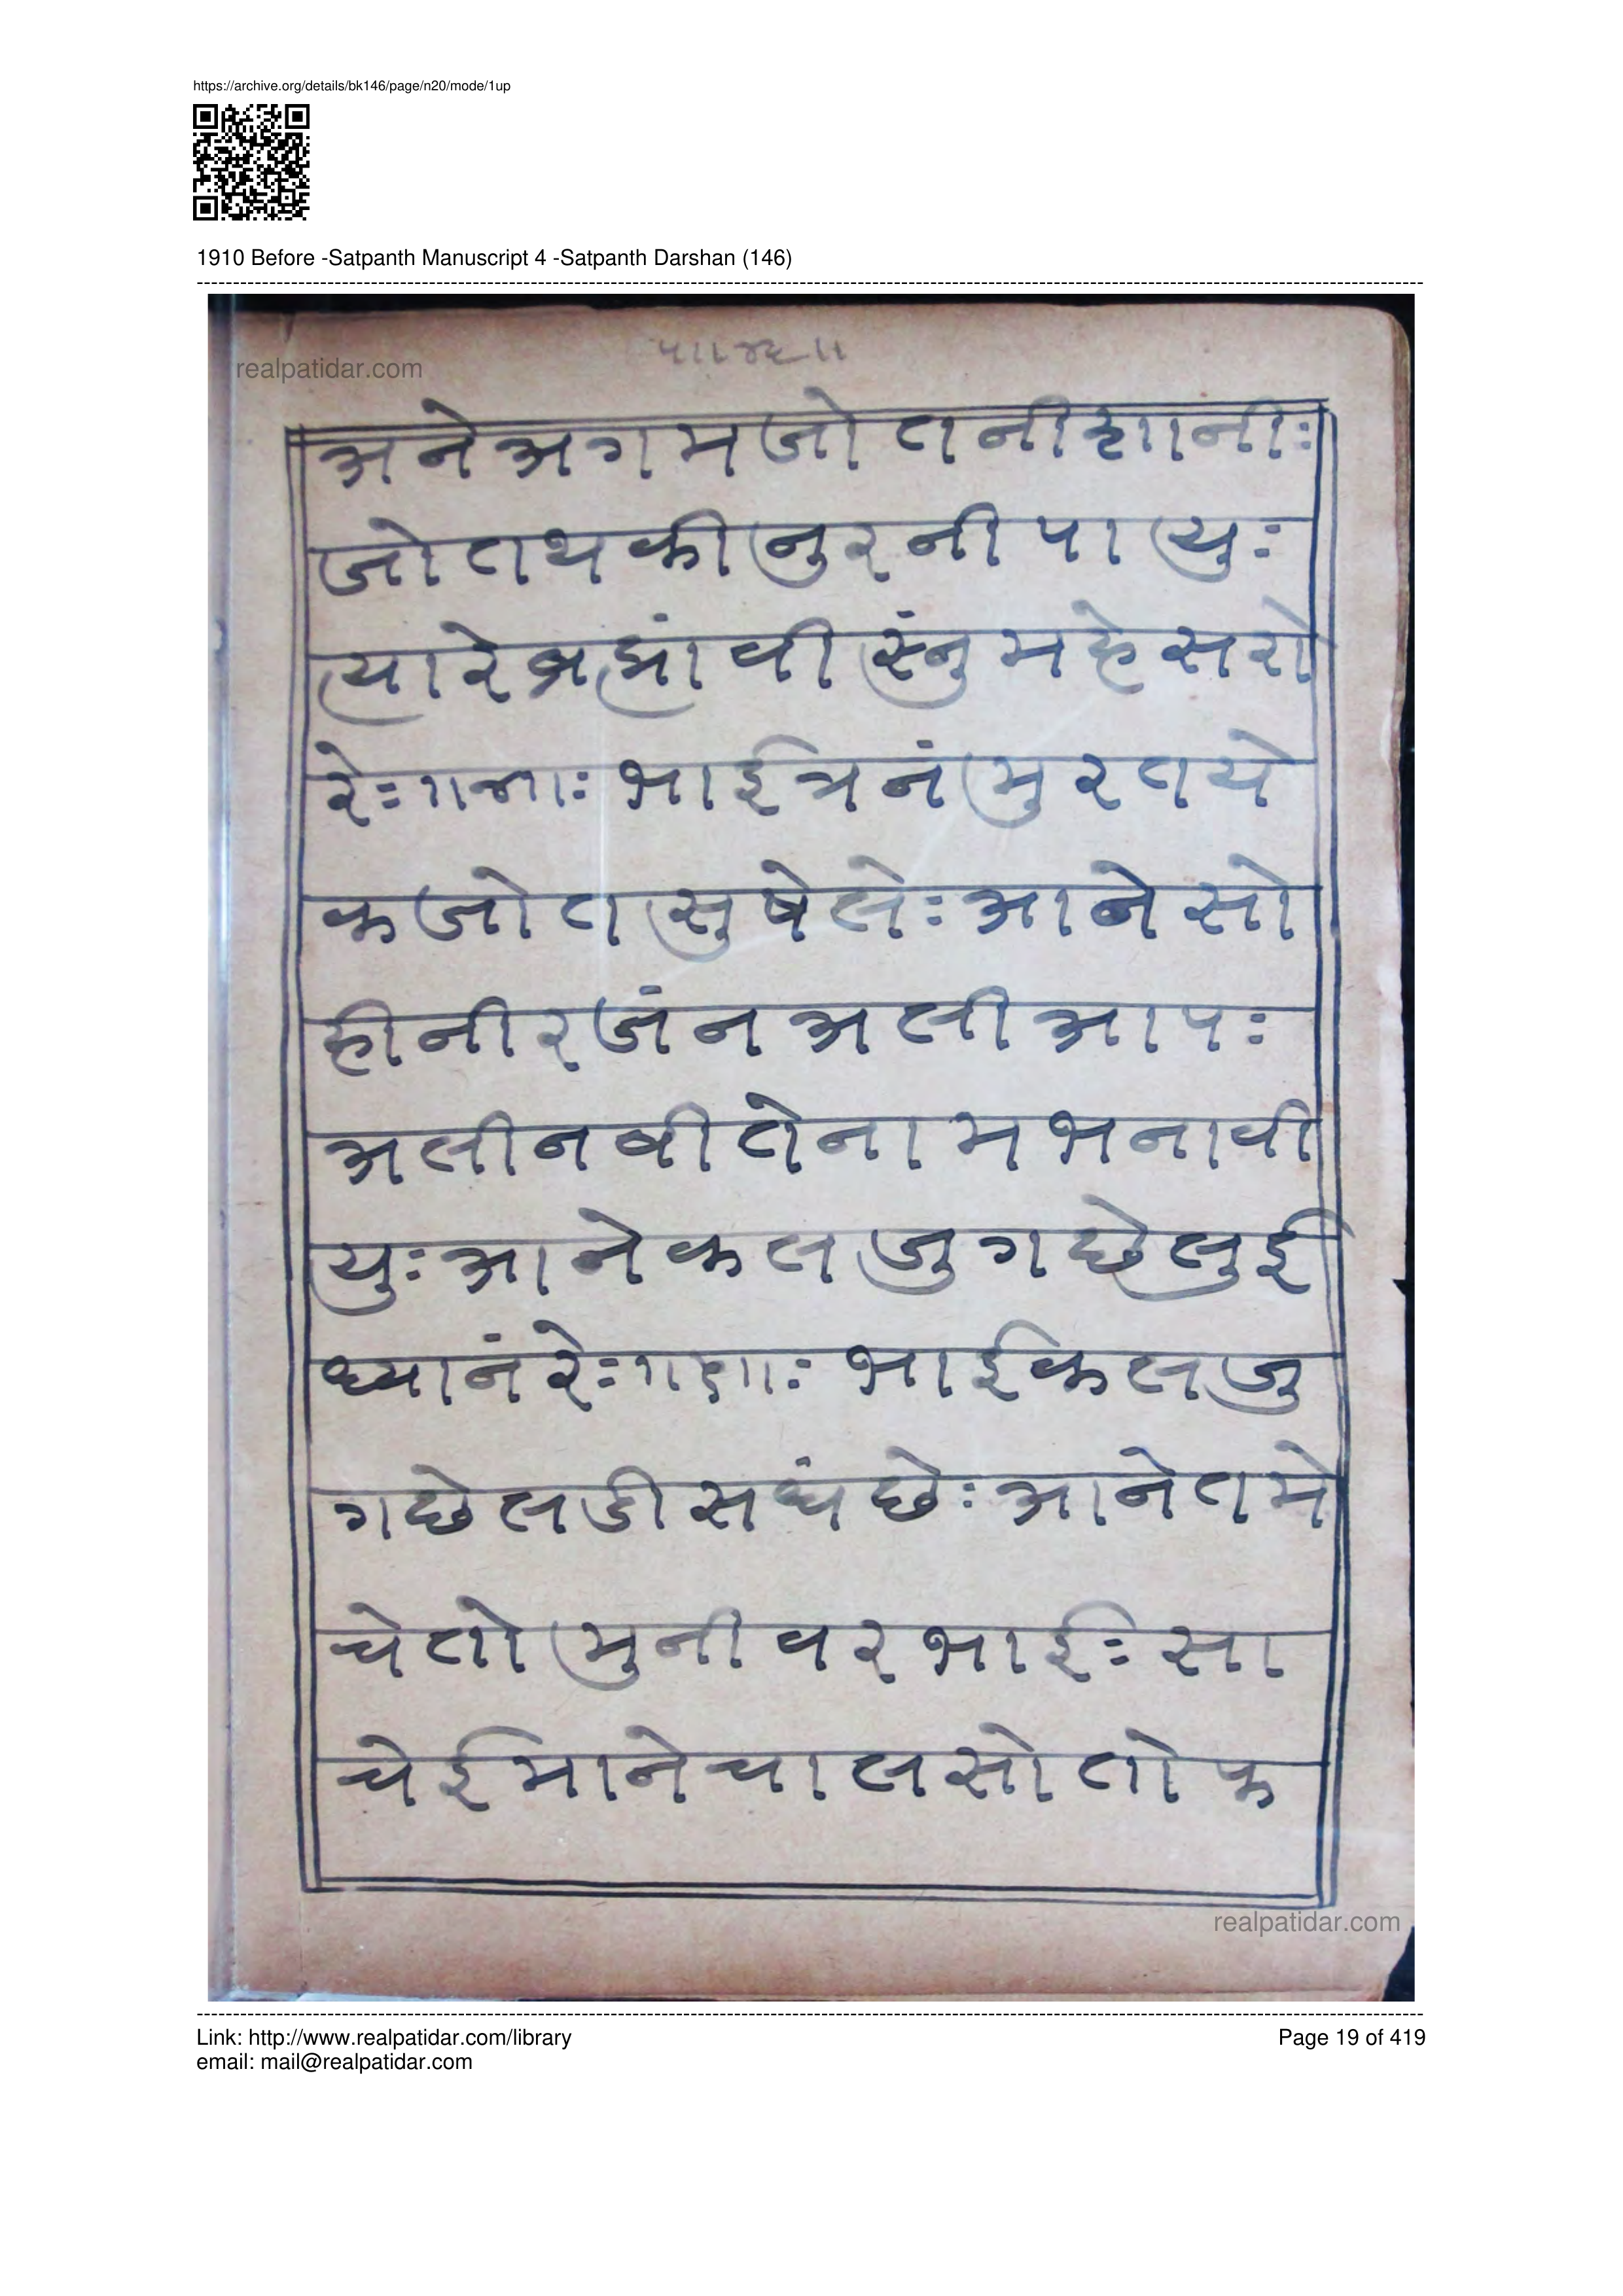 https://archive.org/details/bk146/page/n20/mode/1up
1910 Before -Satpanth Manuscript 4 -Satpanth Darshan (146)
realpatidar.com
अनेअगमजोतनीशानीः
जोतथकीनुरनीपायुः
त्यारेब्रह्मांवीस्नुंमहेसरो
रेः॥ ॥ः भाईत्रनंमुरतये
कजोतसुषेलेः आनेसो
हीनीरजंनअलीआपः
अलीनबीतोनामभनावी
युः आनेकलजुगछेलुई
ध्यानंरेः॥ ॥ः भाईकलजु
गछेलडीसधंछेः आनेतमे
चेतोमुनीवरभाईः सा
चेईमानेचालसोतोफ
realpatidar.com
Link: http://www.realpatidar.com/library
Page 19 of 419
email: mail@realpatidar.com